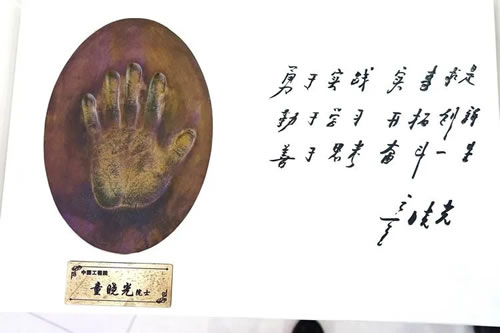 勇于实践 实事求是
勤于学习 开拓创新
善于思考 奋斗一生
童晓光
中国工程院
童晓光院士